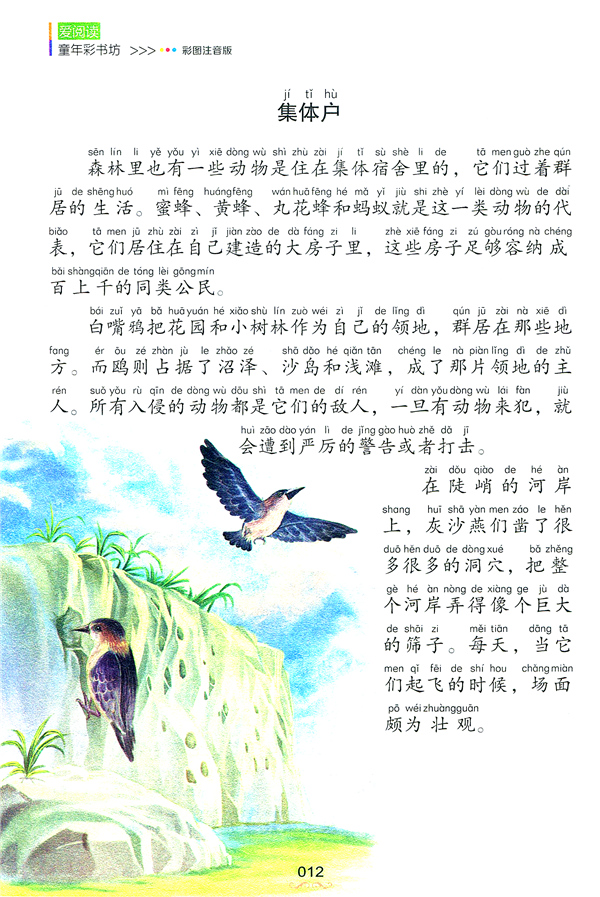 爱阅读
童年彩书坊 >>> 彩图注音版
jí tǐ hù
集体户
sēn lín li yě yǒu yì xiē dòng wù shì zhù zài jí tǐ sù shè li de tā men guò zhe qún
森林里也有一些动物是住在集体宿舍里的，它们过着群
jū de shēng huó mì fēng huáng fēng wán huā fēng hé mǎ yǐ jiù shì zhè yí lèi dòng wù de dài
居的生活。蜜蜂、黄蜂、丸花蜂和蚂蚁就是这一类动物的代
biǎo tā men jū zhù zài zì jǐ jiàn zào de dà fáng zi li zhè xiē fáng zi zú gòu róng nà chéng
表，它们居住在自己建造的大房子里，这些房子足够容纳成
bǎi shàng qiān de tóng lèi gōng mín
百上千的同类公民。
bái zuǐ yā bǎ huā yuán hé xiǎo shù lín zuò wéi zì jǐ de lǐng dì qún jū zài nà xiē dì
白嘴鸦把花园和小树林作为自己的领地，群居在那些地
fang ér ōu zé zhàn jù le zhǎo zé shā dǎo hé qiǎn tān chéng le nà piàn lǐng dì de zhǔ
方。而鸥则占据了沼泽、沙岛和浅滩，成了那片领地的主
rén suǒ yǒu rù qīn de dòng wù dōu shì tā men de dí rén yí dàn yǒu dòng wù lái fàn jiù
人。所有入侵的动物都是它们的敌人，一旦有动物来犯，就
huì zāo dào yán lì de jǐng gào huò zhě dǎ jī
会遭到严厉的警告或者打击。
zài dǒu qiào de hé àn
在陡峭的河岸
shang huī shā yàn men záo le hěn
上，灰沙燕们凿了很
duō hěn duō de dòng xué bǎ zhěng
多很多的洞穴，把整
gè hé àn nòng de xiàng ge jù dà
个河岸弄得像个巨大
de shāi zi měi tiān dāng tā
的筛子。每天，当它
men qǐ fēi de shí hou chǎng miàn
们起飞的时候，场面
pō wéi zhuàng guān
颇为壮观。
012